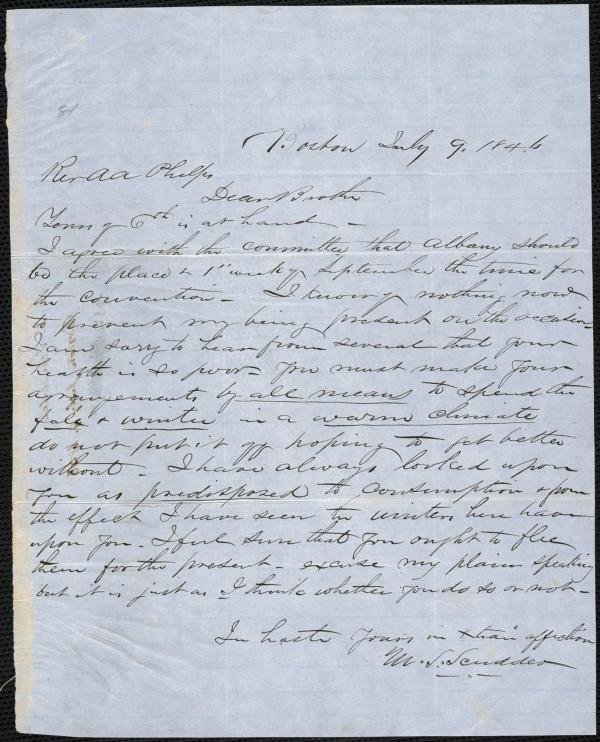 81
Boston July 9. 1846
Rev A A Phelps
Dear Brother
Yours of 6th is at hand –
I agree with the committee that Albany should
be the place & 1st week of September the time for
the convention – I know of nothing now
to prevent my being present on the occasion
I am sorry to hear from several that your
health is so poor – You must make your
arrangements by all means to spend the
fall & winter in a warm climate
do not put it off hoping to get better
without – I have always looked upon
you as predisposed to consumption & from
the effect I have seen the winters here have
upon you – I feel sure that you ought to flee
them for the present – excuse my plain speaking
but it is just as I think whether you do so or not –
In haste Yours in Xtian affection
M. S. Scudder